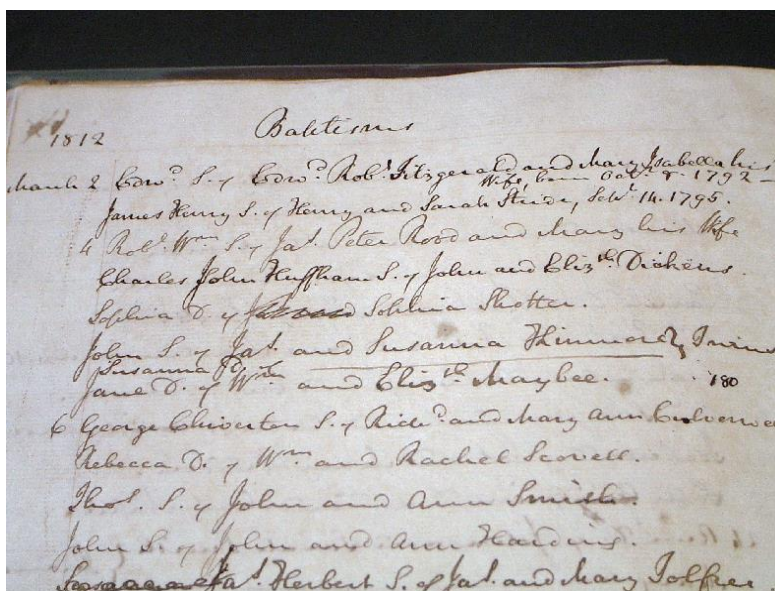 1812 Baptisms
March 2 Edwd. S. of Edwd. Robt. Fitzgerald and Mary Isabella his
Wife, born Octr. 8. 1792 —
James Henry S. of Henry and Sarah Stride, Sepr. 14. 1795.
4 Robt. Wm. S. of Jas. Peter Rood and Mary his Wife
Charles John Huffham S. of John and Elizth. Dickens.
Sophia D. of and Sophia Shotter.
John S. of Jas. and Susanna Twins
Susanna D.
Jane D. of Wm. and Elizth. Maybee. 180
6 George Chiverton S. of Richd. and Mary Ann
Rebecca D. of Wm. and Rachel Scovell.
Thos. S. of John and Ann Smith.
John S. of John and Ann Harding.
Jas. Herbert S. of Jas. and Mary Jolffee